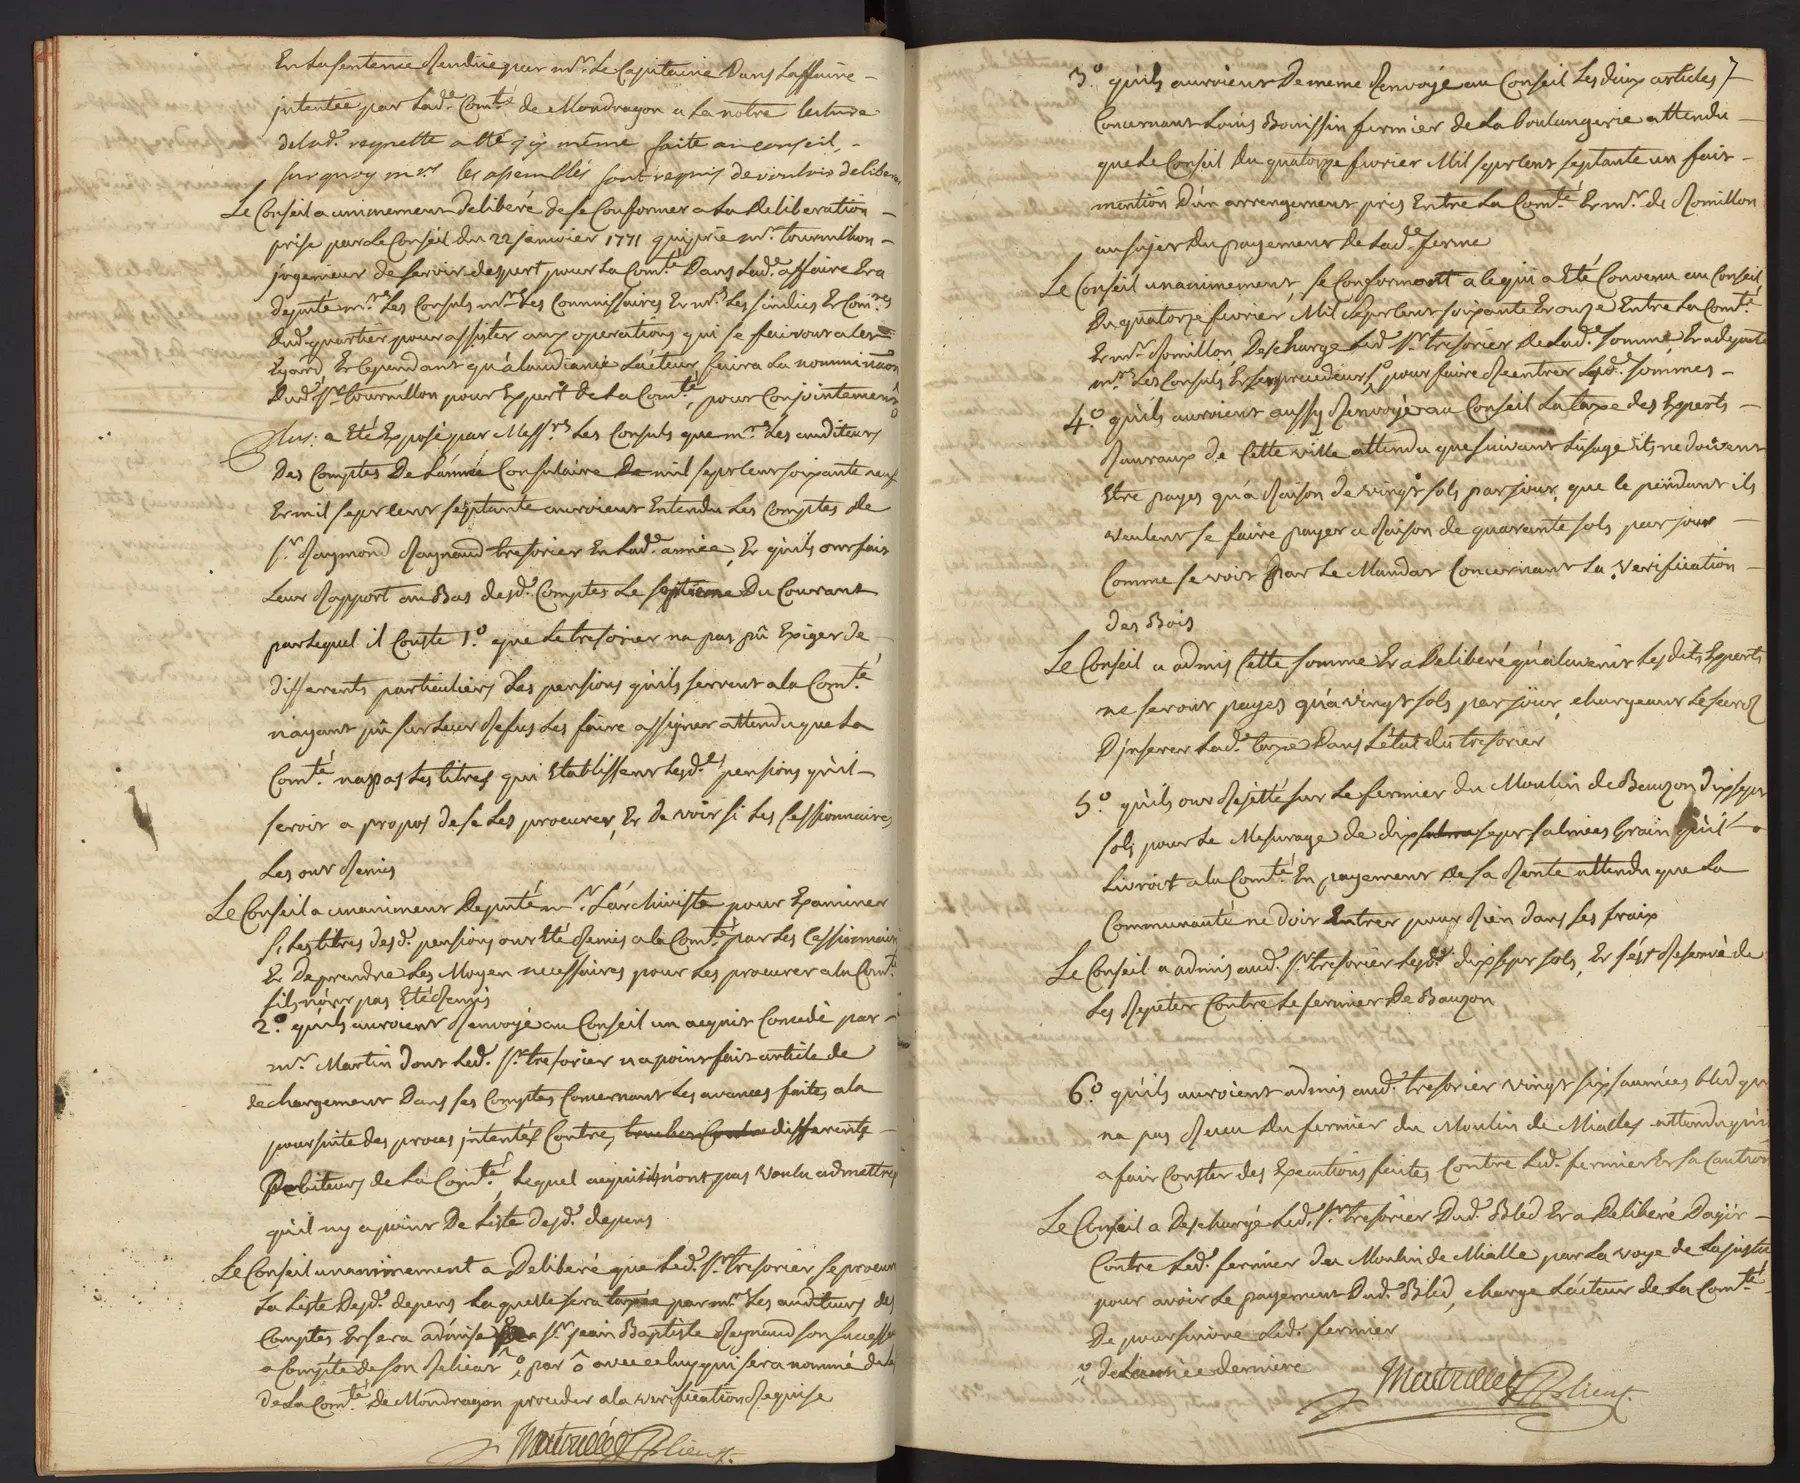 En la sentence Rendüe par mr. Le Capitaine Dans Laffaire
jntentée par Lade. Comté. de Mondragon a la notre lecture
delad. requette a été çÿ même faite au conseil,
sur quoy mrs. les assemblés sont requis de vouloir deliberer
Le Conseil a unimement delibéré de se Conformer a La Deliberation
prise par Le Conseil du 22 janvier 1771 qui prie mr. tournillon
jngenieur de servir dexpert pour La Comté. Dans Lade. affaire Et a
deputé mrs. Les Consuls mrs. Les Commissaires Et mrs. Les sindics Et Comres.
Dud. quartier pour assister aux operations qui se fairont a cet
Egard Et Cependant qu'a laudiance Lacteur faira La nommination
Dud. sr. tournillon pour Expert de La Comté, pour Conjointement
Plus: a Eté Exposé par Messrs. Les Consuls que mrs. Les auditeurs
Des Comptes De Lannée Consulaire De mil sept cent soixante neuf
Et mil sept cent septante auroient Entendu Les Comptes de
sr. Raymond Raynaud tresorier En Lade. année, Et qu'ils ont fait
Leur Rapport au Bas desd. Comptes Le septieme Du Courant
par Lequel il Conste 1o. que Le tresorier na pas pû Exiger de
differents particuliers Les pensions qu'ils servent a la Comté.
n'ayant pû sur Leur Refus Les faire assigner attendu que La
Comté. na pas Les titres qui Etablissent Lesde. pensions qu'il
seroit a propos de se Les procurer, Et De voir si Les Cessionnaires
Les ont Remis
Le Conseil a unaniment Deputé mr. L'archiviste pour Examiner
si Les titres desd. pensions ont été Remis a la Comté. par Les Cessionnaires
Et De prendre Les Moyen necessaires pour Les procurer a la Comté.
sils n'ont pas Eté Remis
2o. qu'ils auroient Renvoyé au Conseil un aquit Concedé par
mr. Martin dont Led. sr. tresorier n a point fait article de
dechargement Dans ses Comptes Concernant Les avances faites a la
poursuite des proces jntentés Contre, differents
Debiteurs de La Comté, Lequel aquit ils n'ont pas Voulu admettre
qu'il n'y a point De Liste desd. depens
Le Conseil unanimement a Deliberé que Led. sr. tresorier se procure
La Liste Desd. depens Laquelle sera taxée par mrs. Les auditeurs des
Comptes Et sera admise a sr. jean Baptiste Reynaud son successeur
a Compte de son Relicat, par avec celuy qui sera nommé de la
de La Comté. De Mondragon proceder a la verification Requise
7
3o. qu'ils auroient De meme Renvoyé au Conseil Les deux articles
Concernant Louis Bouissin fermier de La boulangerie attendu
que Le Conseil du quatorze fevrier Mil sept cent septante un fait
mention D'un arrengement pris Entre La Comté. Et mr. de Romillon
au sujet Du payement de Lade. ferme
Le Conseil unanimement, se Conformant a ce qui a Eté Convenu au Conseil
Du quatorze fevrier Mil sept cent soixante Et onze Entre La Comté.
Et mr. Romillon Descharge Led. sr. tresorier de Lade. somme, Et a deputé
mrs. Les Consuls pour faire Rentrer Lesd. sommes
4o. qu'ils auroient aussy Renvoyé au Conseil La taxe des Experts
Ruraux de Cette ville attendu que suivant Lusage ils ne doivent
Etre payes qu'a Raison de vingt sols par jour, que Ce pendant ils
veulent se faire payer a Raison de quarante sols par jour
Comme se voit par Le Mandat Concernant La verification
des Bois
Le Conseil a admis Cette somme Et a Deliberé qu'a lavenir Lesdits Experts
ne seront payes qu'a vingt sols par jour, chargeant Le
D'jnserer Lade. taxe Dans L'état du tresorier
5o. qu'ils ont Rejetté sur Le fermier du Moulin de Bauzon dix sept
sols pour Le Mesurage de dix sept salmées Grain qu'il
Livroit a la Comté. En payement de sa Rente attendu que La
Communauté ne doit Entrer pour Rien dans Les fraix
Le Conseil a admis aud. sr. tresorier Lesd. dix sept sols, Et s'est Reservé de
Les Repeter Contre Le fermier De Bauzon
6o. qu'ils auroient admis aud. tresorier vingt six saumées bled qu'il
na pas Receu Du fermier du Moulin de Mialles attendu qu'il
a fait Conster des Executions faites Contre Led. fermier Et sa Caution
Le Conseil a Deschargé Led. sr. tresorier Dud. Bled Et a Deliberé D'agir
Contre Led. fermier du Moulin de Mialle par La voye de La justice
pour avoir Le payement Dud. Bled, charge L'acteur de La Comté.
De poursuivre Led. fermier
de Lannée derniere